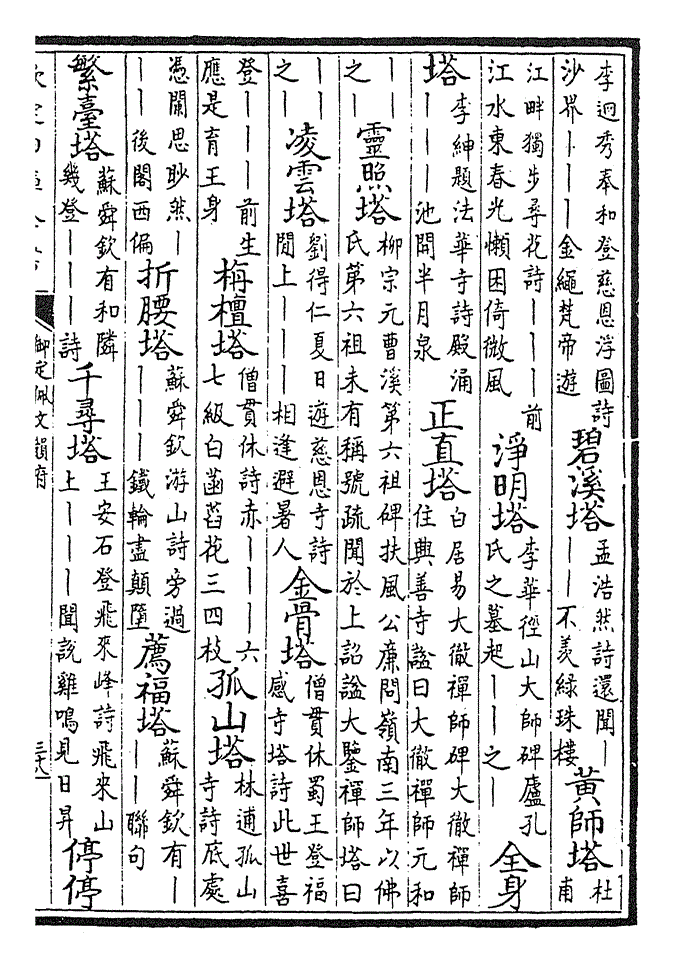 李迥秀奉和登慈恩浮圖詩
沙界丨丨丨金繩梵帝遊
碧溪塔
孟浩然詩還聞丨
丨丨不羡綠珠樓
黃師塔
杜
甫
江畔獨步尋花詩丨丨丨前
江水東春光懶困倚微風
淨明塔
李華徑山大師碑盧孔
氏之墓起丨丨之丨
全身
塔
李紳題法華寺詩殿涌
丨丨丨丨池開半月泉
正直塔
白居易大徹禪師碑大徹禪師
住興善寺諡曰大徹禪師元和
丨丨
之丨
靈照塔
柳宗元曹溪第六祖碑扶風公廉問嶺南三年以佛
氏第六祖未有稱號疏聞於上詔諡大鑒禪師塔曰
丨丨
之丨
凌雲塔
劉得仁夏日遊慈恩寺詩
閒上丨丨丨相逢避暑人
金骨塔
僧貫休蜀王登福
感寺塔詩此世喜
登丨丨丨前生
應是育王身
栴檀塔
僧貫休詩赤丨丨丨六
七級白菡萏花三四枝
孤山塔
林逋孤山
寺詩底處
憑闌思眇然丨
丨丨後閣西偏
折腰塔
蘇舜欽游山詩旁過
丨丨丨鐵輪盡顛墮
薦福塔
蘇舜欽有丨
丨丨聯句
繁臺塔
蘇舜欽有和隣
幾登丨丨丨詩
千尋塔
王安石登飛來峰詩飛來山
上丨丨丨聞說雞鳴見日昇
停停
御定佩文韻府
三十八